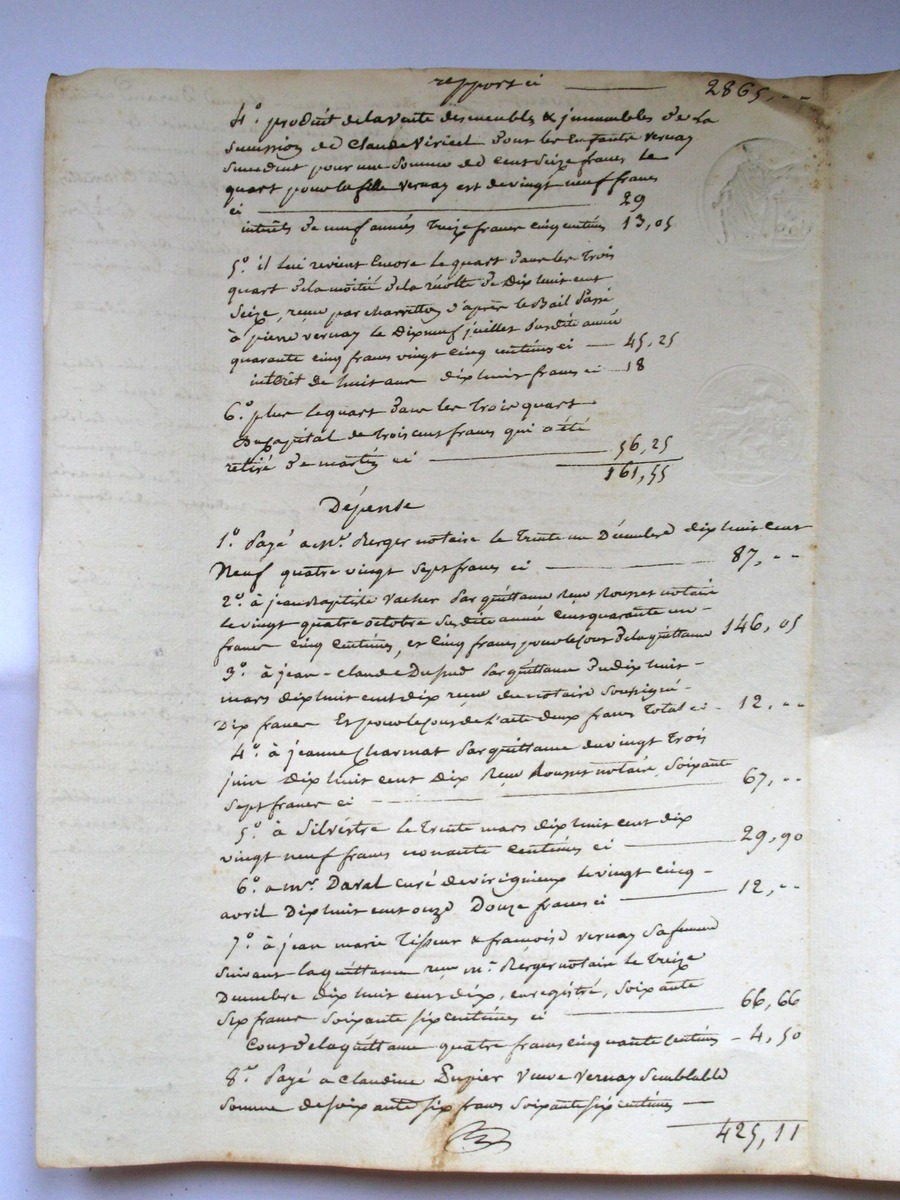 report ci 2865, --
4.° produit de la vente des meubles & immeubles de la
succession de Claude Viricel dont les Enfants vernay
succedent pour une somme de cent seize francs le
quart pour la fille vernay est de vingt neuf francs
ci 29
intérêts de neuf années treize francs cinq centimes 13,05
5.° il lui revient Encore le quart dans les trois
quart de la moitié de la récolte de Dix huit cent
seize, reçue par charretton d'après le Bail Passé
à pierre vernay le Dix neuf juillet susdite année
quarante cinq francs vingt cinq centimes ci 45,25
intérêt de huit ans dix huit francs ci 18
6.° plus le quart dans les trois quart
Du Capital de trois cent francs qui a été
retiré de martin ci 56,25
161,55
Dépense
1.° Payé a m.r Berger notaire le trente un Décembre dix huit cent
Neuf quatre vingt sept francs ci 87, --
2.° à jean Baptiste vacher Par quittance Reçu Rousset notaire
le vingt quatre octobre susdite année cent quarante un
francs cinq centimes, et cinq francs pour le cout de la quittance 146,05
3.° à jean-claude Dupud Par quittance du dix huit
mars dix huit cent dix reçue du notaire soussigné
Dix francs Et pour le cout de l'acte deux francs total ci 12, --
4.° à jeanne Charmat Par quittance du vingt trois
juin Dix huit cent Dix Reçu Rousset notaire, soixante
sept francs ci 67, --
5.° à Silvestre le trente mars dix huit cent dix
vingt neuf francs nonante centimes ci 29,90
6.° a m.r Daval curé de viricigneux le vingt cinq
avril Dix huit cent onze Douze francs ci 12, --
7.° à jean marie Tisseur & françoise vernay sa femme
suivant la quittance reçu m.e Berger notaire le treize
Décembre dix huit cent dix, enregistré, soixante
six francs soixante six centimes ci 66,66
Cout de la quittance quatre francs cinquante centimes 4,50
8.° Payé a Claudine Dupier Veuve Vernay Semblable
somme de soixante six francs soixante six centimes
425,11